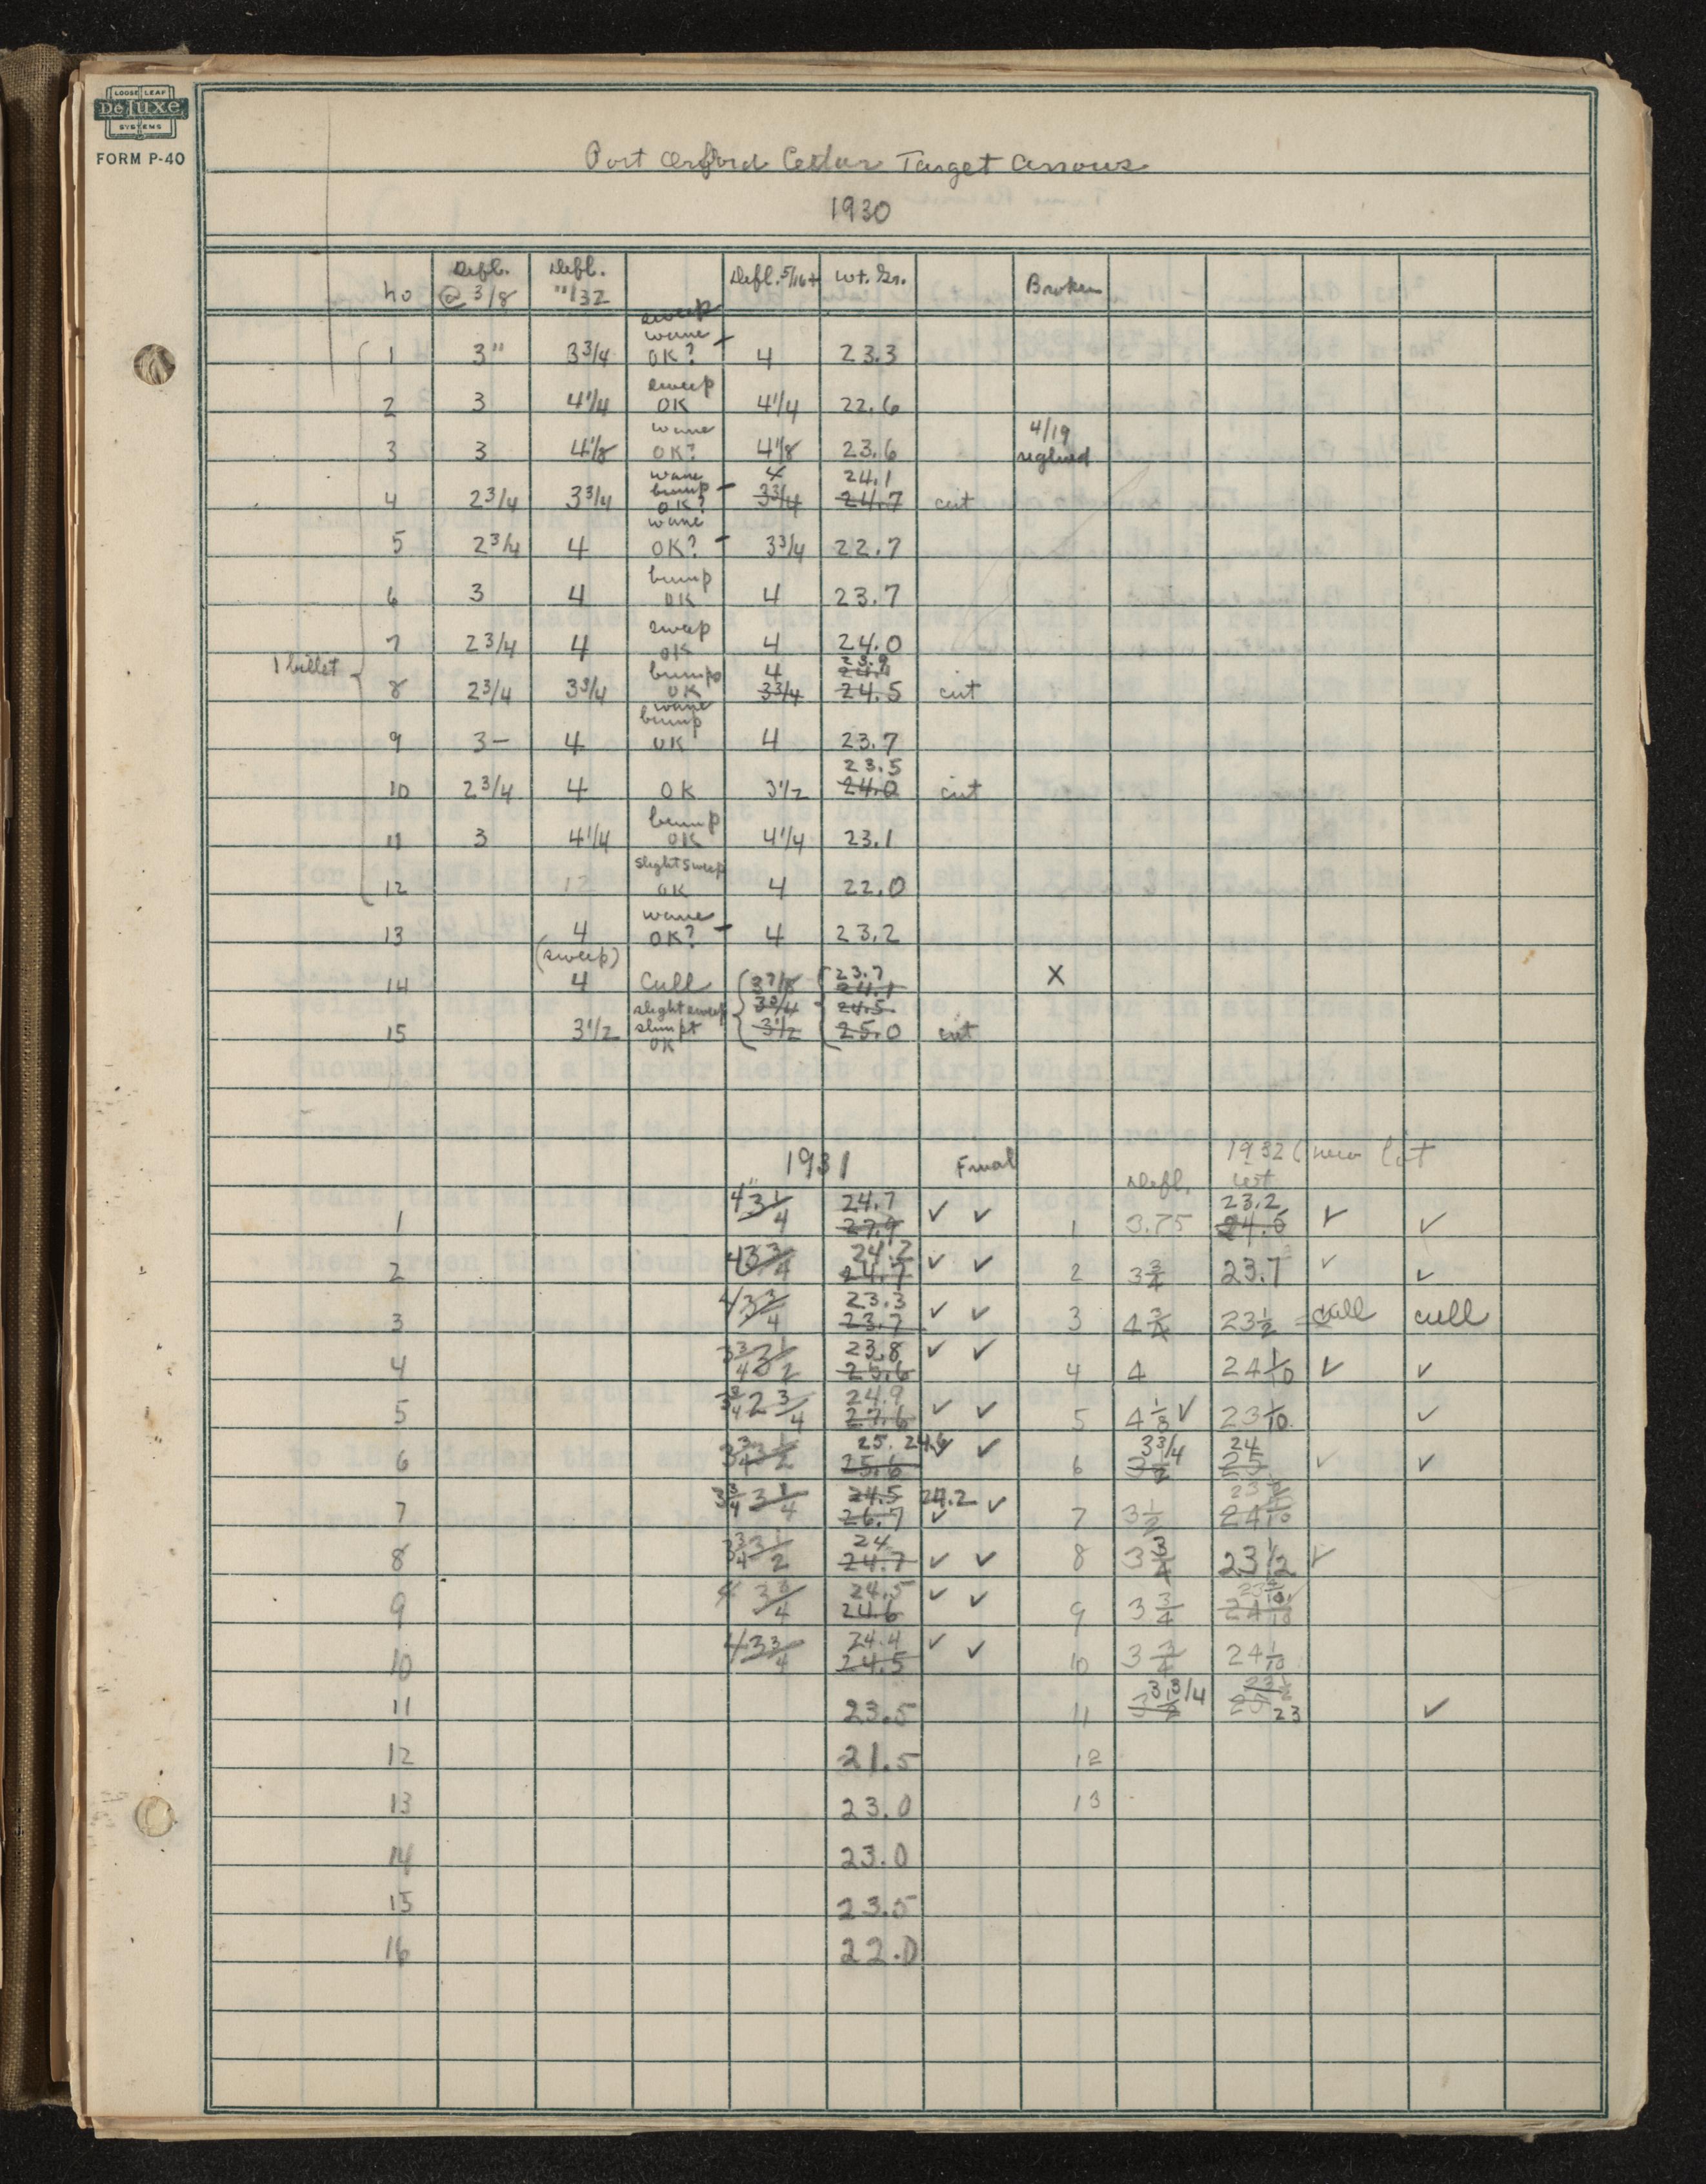 LOOSE LEAF
DeLuxe
SYSTEMS
FORM P-40
Port Orford Cedar Target Arrows
1930
no Defl. @ 3/8 Defl. 11/32 Defl. 5/16+ wt. Gr. Broken
1 billet
1 3" 3 3/4 sweep wane OK? - 4 23.3
2 3 4 1/4 sweep OK 4 1/4 22.6
3 3 4 1/8 wane OK? 4 1/8 23.6 4/19 reglued
4 2 3/4 3 3/4 wane bump OK? - 4 3 3/4 24.1 24.7 cut
5 2 3/4 4 wane OK? - 3 3/4 22.7
6 3 4 bump OK 4 23.7
7 2 3/4 4 sweep OK 4 24.0
8 2 3/4 3 3/4 bump OK 4 3 3/4 23.9 24.1 24.5 cut
9 3- 4 wane bump OK 4 23.7
10 2 3/4 4 OK 3 1/2 23.5 24.0 cut
11 3 4 1/4 bump OK 4 1/4 23.1
12 12 slight sweep OK 4 22.0
13 4 wane OK? - 4 23.2
14 (sweep) 4 Cull X
15 3 1/2 slight sweep OK 3 7/8 3 3/4 3 1/2 23.7 24.1 24.5 25.0 cut
1931 Final 1932 (new lot
Defl. wt
1 4" 3 1/4 24.7 27.9 ✓ ✓ 1 3.75 23.2 24.6 ✓ ✓
2 4 3 3/4 24.2 24.7 ✓ ✓ 2 3 3/4 23.7 ✓ ✓
3 4 3 3/4 23.3 23.7 ✓ ✓ 3 4 3/4 23 1/2 cull cull
4 3 3/4 3 1/2 23.8 25.6 ✓ ✓ 4 4 24 1/10 ✓ ✓
5 3 3/4 2 3/4 24.9 27.6 ✓ ✓ 5 4 1/8 ✓ 23 1/10 ✓
6 3 3/4 3 1/2 25. 24.6 25.6 ✓ ✓ 6 3 3/4 3 1/2 24 25 ✓ ✓
7 3 3/4 3 1/4 24.5 26.7 24.2 ✓ ✓ 7 3 1/2 23 24
8 3 3/4 3 1/2 24 24.7 ✓ ✓ 8 3 3/4 23 1/2 ✓
9 4 3 3/4 24.5 24.6 ✓ ✓ 9 3 3/4 23 24
10 4 3 3/4 24.4 24.5 ✓ ✓ 10 3 3/4 24 1/10
11 23.5 11 3 3/4 23 ✓
12 21.5 12
13 23.0 13
14 23.0
15 23.5
16 22.0